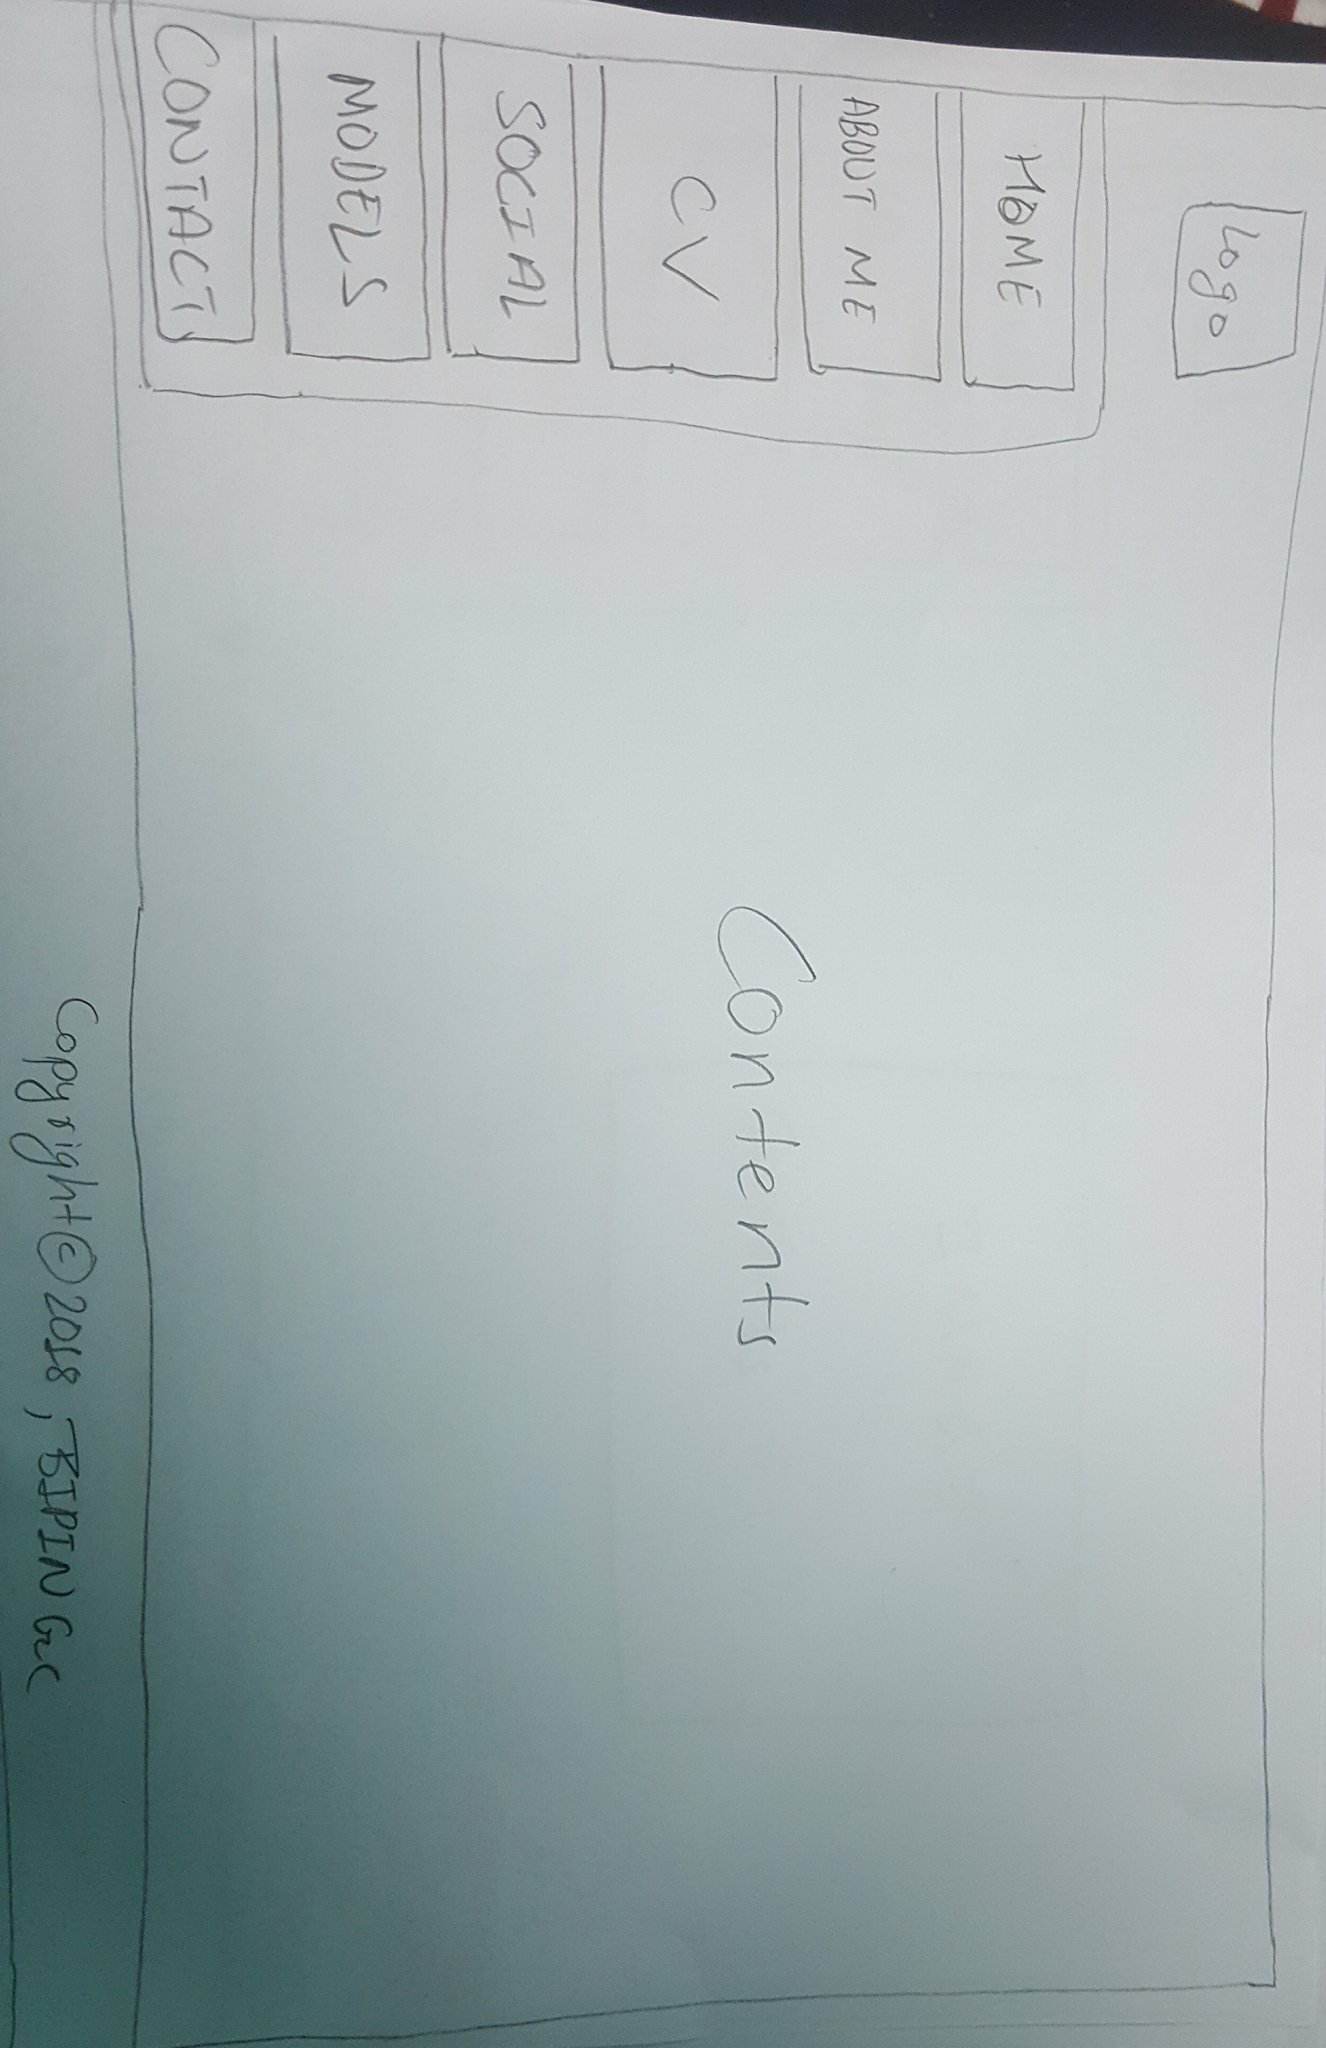 Logo
HOME
ABOUT ME
CV
SOCIAL
MODELS
CONTACT
Contents
Copyright © 2018, BIPIN GC